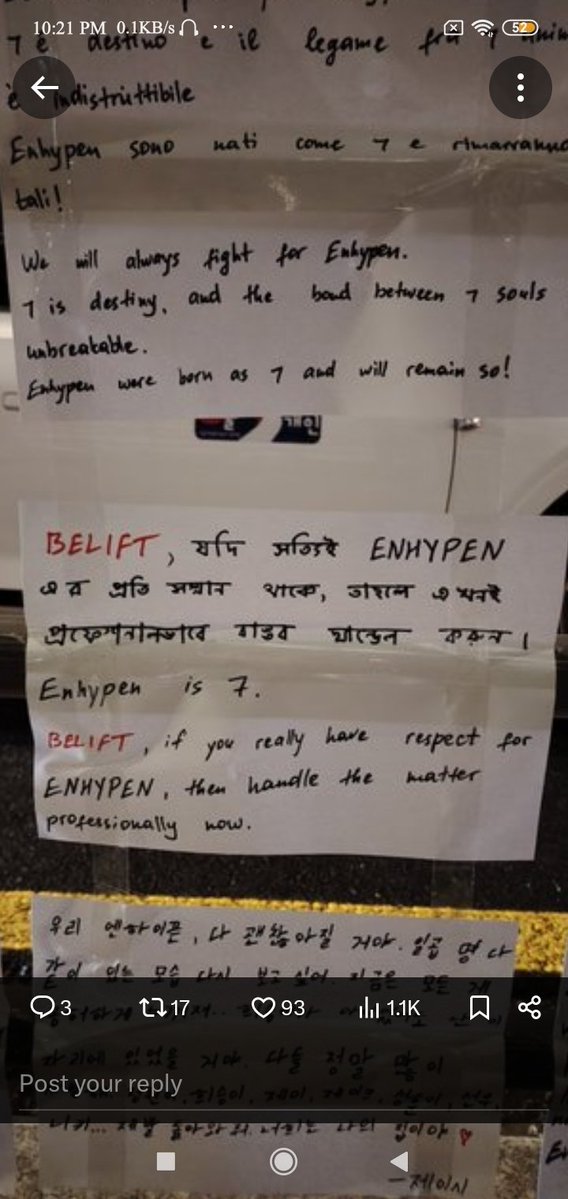 10:21 PM 0.1KB/s
52
7 è destino e il legame fra 7
è indistruttibile
Enhypen sono nati come 7 e rimarranno
tali!
We will always fight for Enhypen.
7 is destiny, and the bond between 7 souls
unbreakable.
Enhypen were born as 7 and will remain so!
BELIFT, যদি সত্যিই ENHYPEN
এর প্রতি সম্মান থাকে, তাহলে এখনই
করুন।
Enhypen is 7.
BELIFT, if you really have respect for
ENHYPEN, then handle the matter
professionally now.
우리 엔하이픈, 다 괜찮아질 거야. 일곱 명 다
같이 있는 모습 다시 보고 싶어. 지금은 모든 게
3 17 93 1.1K
자리에 있었을 거야. 다들 정말 많이
Post your reply
희승이, 제이, 제이크,
니키... 제발 돌아와 줘. 너희는 나의 집이야